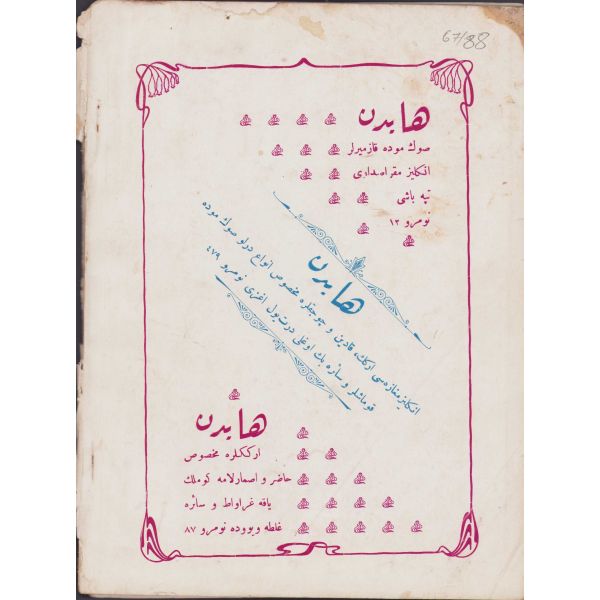 67/88
هايدن
صوك موده قازميرلر
انكليز مقراصداری
تپه باشی
نومرو ١٢
هايدن
انكليز مغازه سی ارکك، قادين و چوجقلره مخصوص انواع درلو صوك موده
قوماشلر و سائره بك اوغلی درت يول اغزی نومرو ٤٧٩
هايدن
ارككلره مخصوص
حاضر و اصمارلامه كوملك
ياقه غراواط و سائره
غلطه ويووده نومرو ٨٧